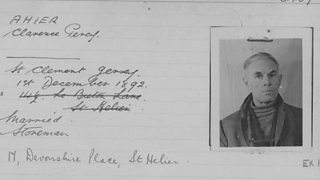 AHIER
Clarence Percy
St Clement Jersey.
1st December 1892.
St Helier
Married
Storeman
14, Devonshire Place, St Helier.
EX